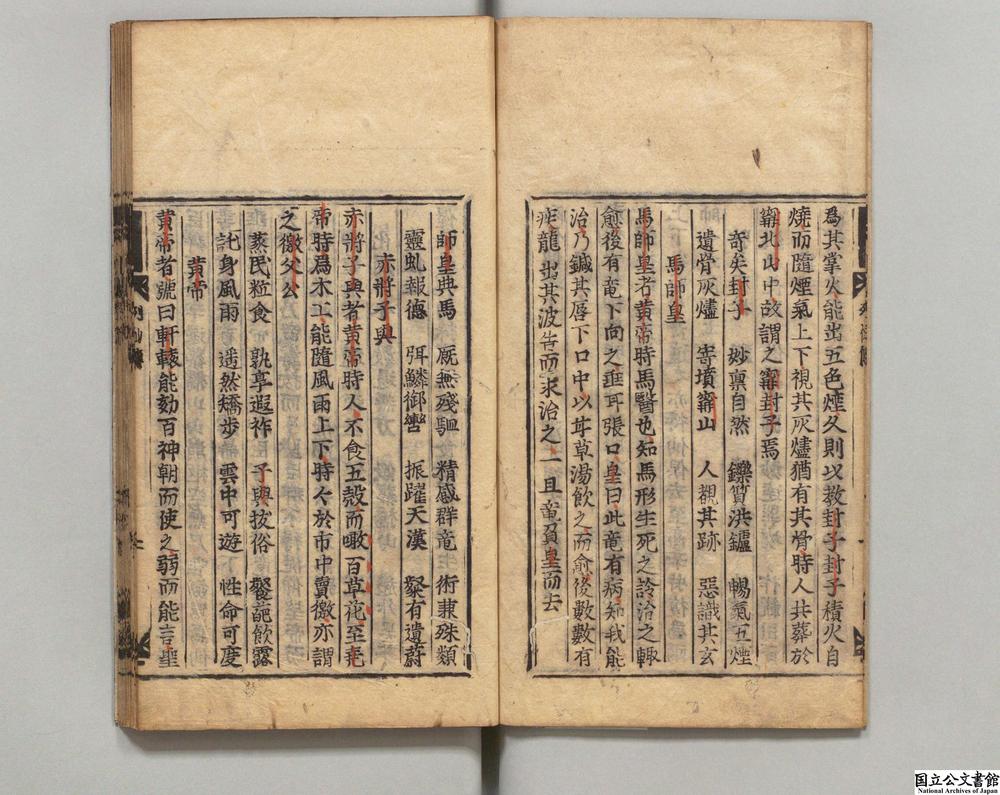 爲其掌火能出五色煙久則以教封子封子積火自
燒而隨煙氣上下視其灰燼猶有其骨時人共葬於
甯北山中故謂之甯封子焉
奇矣封子 妙稟自然 鑠質洪鑪 暢氣五煙
遺骨灰燼 寄墳甯山 人覩其跡 惡識其玄
馬師皇
馬師皇者黃帝時馬醫也知馬形生死之診治之輒
愈後有竜下向之垂耳張口皇曰此竜有病知我能
治乃鍼其唇下口中以甘草湯飲之而愈後數數有
疾龍出其波告而求治之一旦竜負皇而去
師皇典馬 厩無殘駆 精感群竜 術兼殊類
靈虬報德 弭鱗御轡 振躍天漢 粲有遺蔚
赤將子輿
赤將子輿者黃帝時人不食五穀而噉百草花至尭
帝時爲木工能隨風雨上下時々於市中賣徼亦謂
之徼父公
蒸民粒食 孰享遐祚 子輿拔俗 餐葩飲露
託身風雨 遥然矯步 雲中可遊 性命可度
黃帝
黃帝者號曰軒轅能劾百神朝而使之弱而能言聖
国立公文書館
National Archives of Japan